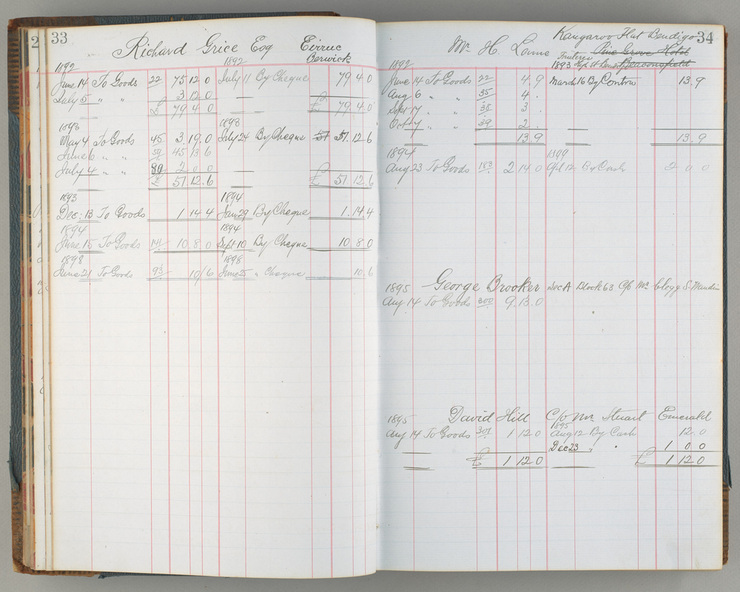 33
Richard Grice Esq Eirruc
Berwick
1892 1892
June 14 To Goods 22 75 12 0 July 11 By Cheque 79 4 0
July 5 " " 3 12 0
£ 79 4 0 £ 79 4 0
1893 1893
May 4 To Goods 45 3.19.0 July 24 By Cheque 57.12.6
June 6 " " 45 13 6
July 4 " " 99 2 0 0
£ 57 12.6 £ 57 12.6
1893 1894
Dec. 13 To Goods 1 14 4 Jan 29 By Cheque 1.14.4
1894 1894
June 15 To Goods 10 8 0 Sept 10 By Cheque 10.8.0
1898 1898
June 21 To Goods 93 10/6 June 25 " Cheque 10.6
34
Kangaroo Flat Bendigo
Mr H. Hotel
1892 1893
June 14 To Goods 22 4.9 March 16 By Contra 13.9
Aug 6 " " 35 4
Sept 7 " " 35 3
Oct 7 " 39 2
13.9 13.9
1894 1899
Aug 23 To Goods 153 2 14 0 12 By Cash 2 0 0
1895 George Brooker Block 63 C/o Mc
Aug 14 To Goods 9.13.0
1895 David Hill C/o Mr Stuart Emerald
1895
Aug 14 To Goods 1 12 0 Aug 12 By Cash 12.0
Dec 23 " " 1 0 0
£ 1 12 0 £ 1 12 0